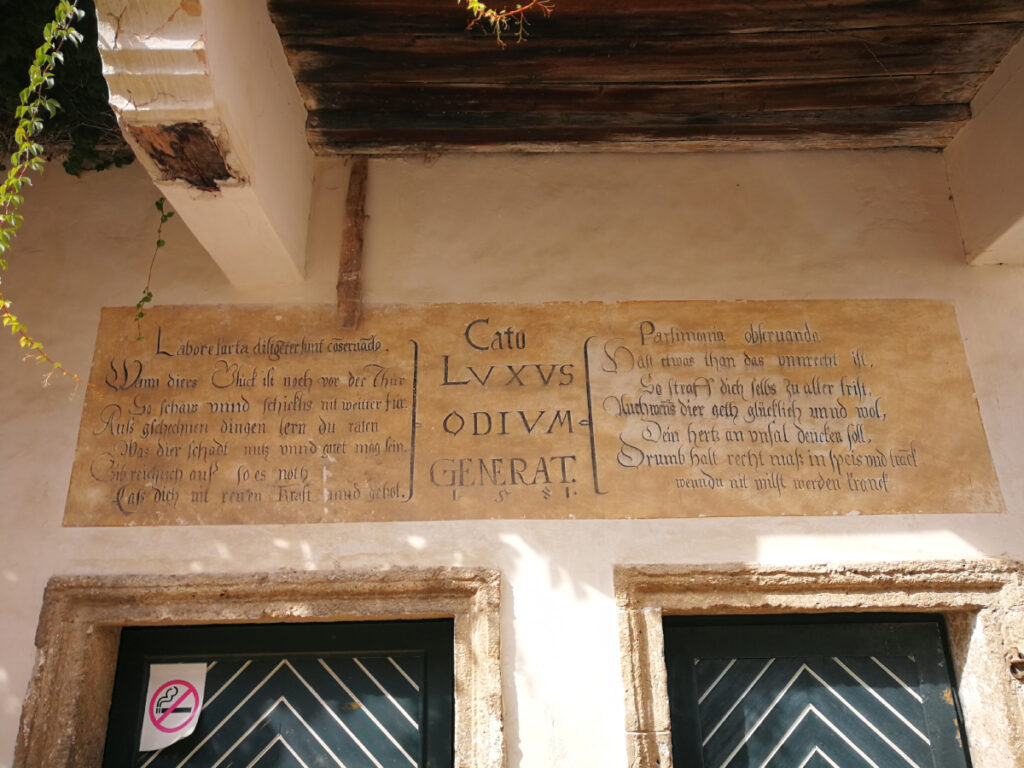 Labore parta diligēter sunt cōservāda.
Wann diers Glück ist noch vor der Thür
So schaus vnnd schickhs nit weitter für.
Auß gschechnen dingen lern du raten
Was dier schadt nutz vnnd guet mag sein.
Gib reichlich auß so es noth
Laß dich nit reuen Kraft nand gebot.
Cato
LVXVS
ODIVM
GENERAT.
1581.
Parsimonia observanda
Hast etwas than das vnnrecht ist,
So straff dich selbs zu aller frist,
Auch wens dier geth glücklich vnnd wol,
Dein hertz an vnfal dencken soll,
Drumb halt recht maß in speis vnd tranck
wenndu nit wilst werden kranck